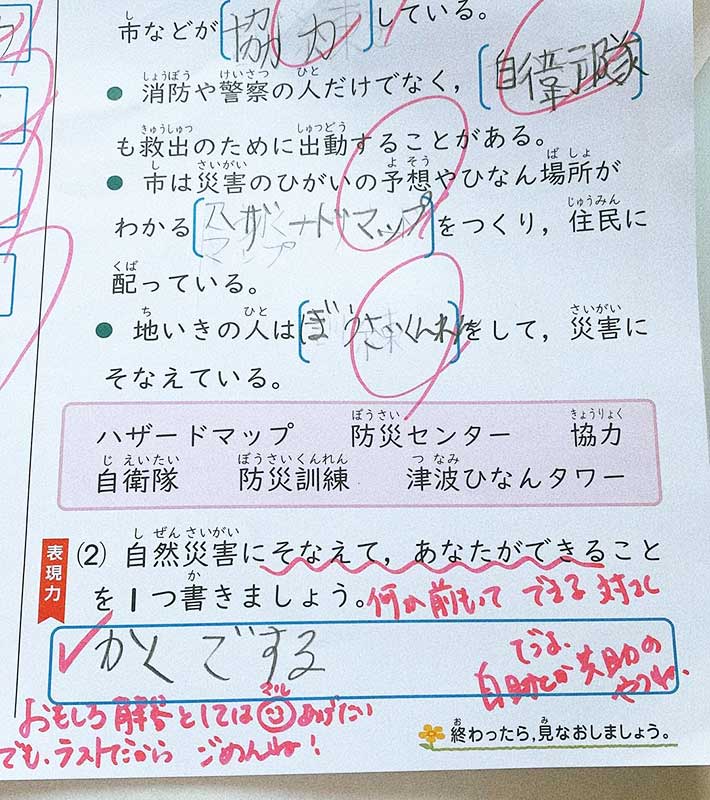 市などが[協力]している。
● 消防や警察の人だけでなく，[自衛隊]
も救出のために出動することがある。
● 市は災害のひがいの予想やひなん場所が
わかる[ハザードマップ]をつくり，住民に
配っている。
● 地いきの人は[ぼうさいくんれん]をして，災害に
そなえている。
ハザードマップ 防災センター 協力
自衛隊 防災訓練 津波ひなんタワー
表現力
(2) 自然災害にそなえて，あなたができること
を1つ書きましょう。何か前もって できる 対さく
かくごする
でうよ、
自助とか共助の
やつね、
おもしろ解答としてはマルあげたい
でも、ラストだから ごめんね!
終わったら，見なおしましょう。